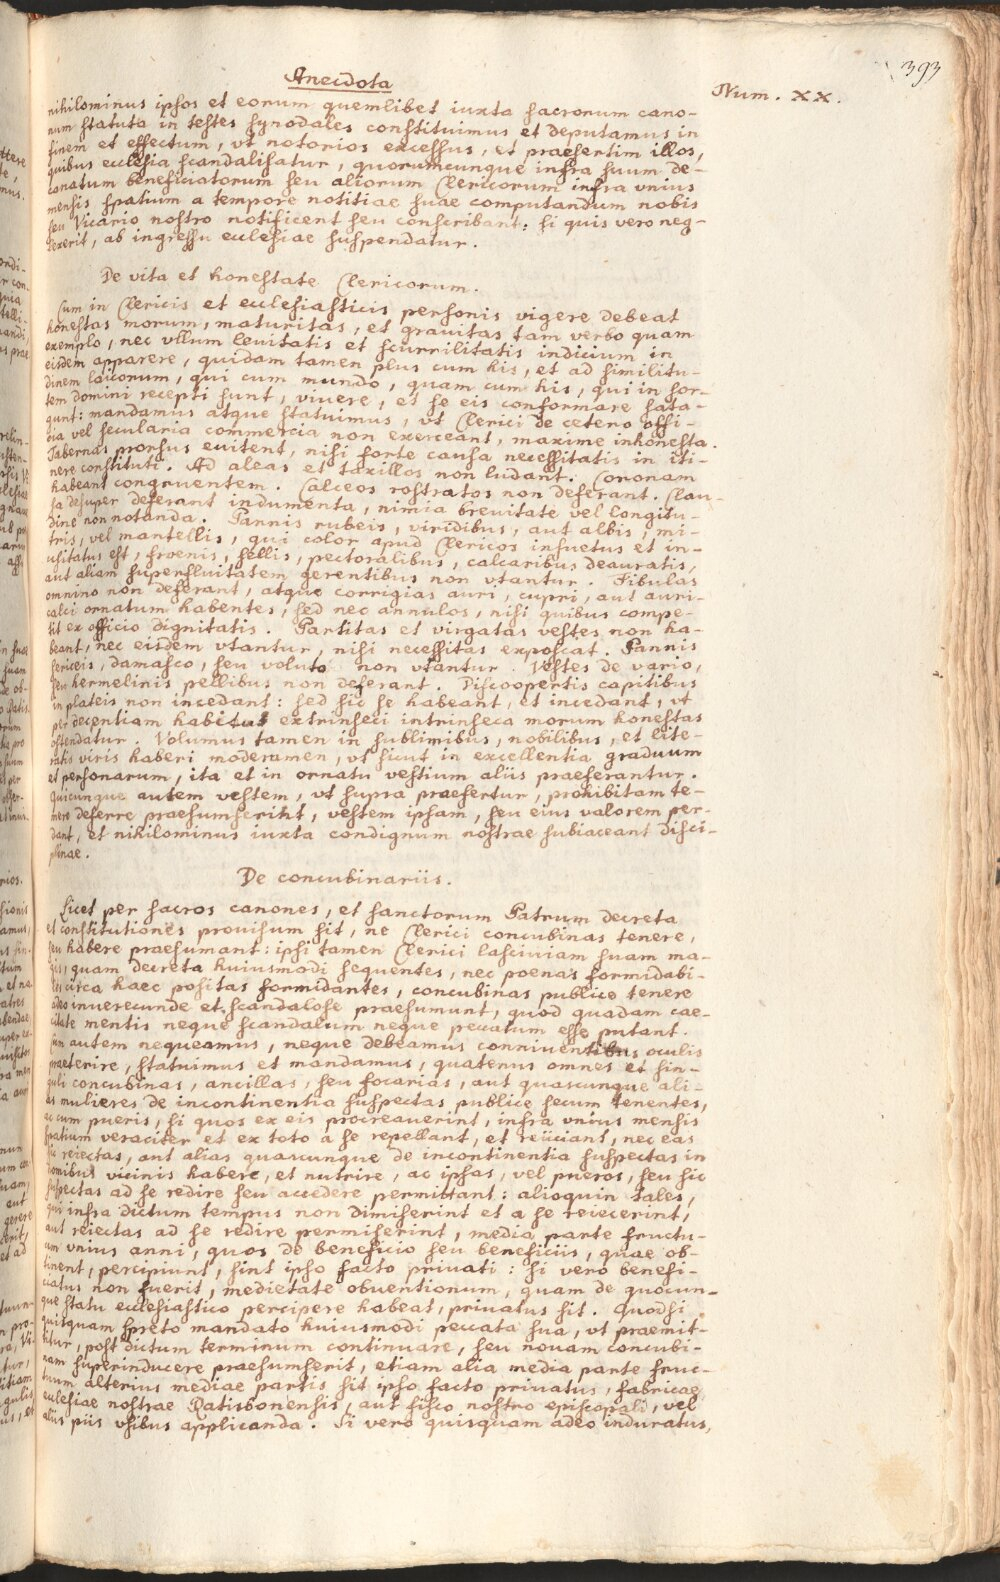 393
Anecdota
Num. XX.
nihilominus ipsos et eorum quemlibet iuxta sacrorum cano-
num statuta in testes synodales constituimus et deputamus in
finem et effectum, vt notorios excessus, et praesertim illos,
quibus ecclesia scandalisatur, quorumcunque infra suum de-
canatum beneficiatorum seu aliorum Clericorum infra vnius
mensis spatium a tempore notitiae suae computandum nobis
seu Vicario nostro notificent seu conscribant: si quis vero neg-
lexerit, ab ingressu ecclesiae suspendatur.
De vita et honestate Clericorum.
Cum in Clericis et ecclesiasticis personis vigere debeat
honestas morum, maturitas, et grauitas tam verbo quam
exemplo, nec vllum leuitatis et scurrilitatis indicium in
eisdem apparere, quidam tamen plus cum his, et ad similitu-
dinem laicorum, qui cum mundo, quam cum his, qui in sor-
tem domini recepti sunt, viuere, et se eis conformare sata-
gunt: mandamus atque statuimus, vt Clerici de cetero offi-
cia vel secularia commercia non exerceant, maxime inhonesta.
Tabernas prorsus euitent, nisi forte causa necessitatis in iti-
nere constituti. Ad aleas et taxillos non ludant. Coronam
habeant congruentem. Calceos rostratos non deferant. Clau-
sa desuper deferant indumenta, nimia breuitate vel longitu-
dine non notanda. Pannis rubeis, viridibus, aut albis, mi-
tris, vel mantellis, qui color apud Clericos insuetus et in-
usitatus est, froenis, sellis, pectoralibus, calcaribus deauratis,
aut aliam superfluitatem gerentibus non vtantur. Fibulas
omnino non deferant, atque corrigias auri, cupri, aut auri-
calci ornatum habentes, sed nec annulos, nisi quibus compe-
tit ex officio dignitatis. Partitas et virgatas vestes non ha-
beant, nec eisdem vtantur, nisi necessitas exposcat. Pannis
sericeis, damasco, seu voluto non vtantur. Vestes de vario,
seu hermelinis pellibus non deferant. Discoopertis capitibus
in plateis non incedant: sed sic se habeant, et incedant, vt
per decentiam habitus extrinseci intrinseca morum honestas
ostendatur. Volumus tamen in sublimibus, nobilibus, et lite-
ratis viris haberi moderamen, vt sicut in excellentia graduum
et personarum, ita et in ornatu vestium aliis praeferantur.
Quicunque autem vestem, vt supra praefertur, prohibitam te-
mere deferre praesumserint, vestem ipsam, seu eius valorem per-
dant, et nihilominus iuxta condignum nostrae subiaceant disci-
plinae.
De concubinariis.
Licet per sacros canones, et sanctorum Patrum decreta
et constitutiones prouisum sit, ne Clerici concubinas tenere,
seu habere praesumant: ipsi tamen Clerici lasciuiam suam ma-
gis, quam decreta huiusmodi sequentes, nec poenas formidabi-
les circa haec positas formidantes, concubinas publice tenere
adeo inuerecunde et scandalose praesumunt, quod quadam cae-
citate mentis neque scandalum neque peccatum esse putant.
Cum autem nequeamus, neque debeamus conniuentibus oculis
praeterire, statuimus et mandamus, quatenus omnes et sin-
guli concubinas, ancillas, seu focarias, aut quascunque ali-
as mulieres de incontinentia suspectas publice secum tenentes,
ac cum pueris, si quos ex eis procreauerint, infra vnius mensis
spatium veraciter et ex toto a se repellant, et reiiciant, nec eas
sic reiectas, aut alias quascunque de incontinentia suspectas in
domibus vicinis habere, et nutrire, ac ipsas, vel pueros, seu sic
suspectas ad se redire seu accedere permittant: alioquin tales,
qui infra dictum tempus non dimiserint et a se reiecerint,
aut reiectas ad se redire permiserint, media parte fructu-
um vnius anni, quos de beneficio seu beneficiis, quae ob-
tinent, percipiunt, sint ipso facto priuati: si vero benefi-
ciatus non fuerit, medietate obuentionum, quam de quocun-
que statu ecclesiastico percipere habeat, priuatus sit. Quodsi
quisquam spreto mandato huiusmodi peccata sua, vt praemit-
titur, post dictum terminum continuare, seu nouam concubi-
nam superinducere praesumserit, etiam alia media parte fruc-
tuum alterius mediae partis sit ipso facto priuatus, fabricae
ecclesiae nostrae Ratisbonensis, aut fisco nostro episcopali, vel
aliis piis vsibus applicanda. Si vero quisquam adeo induratus,